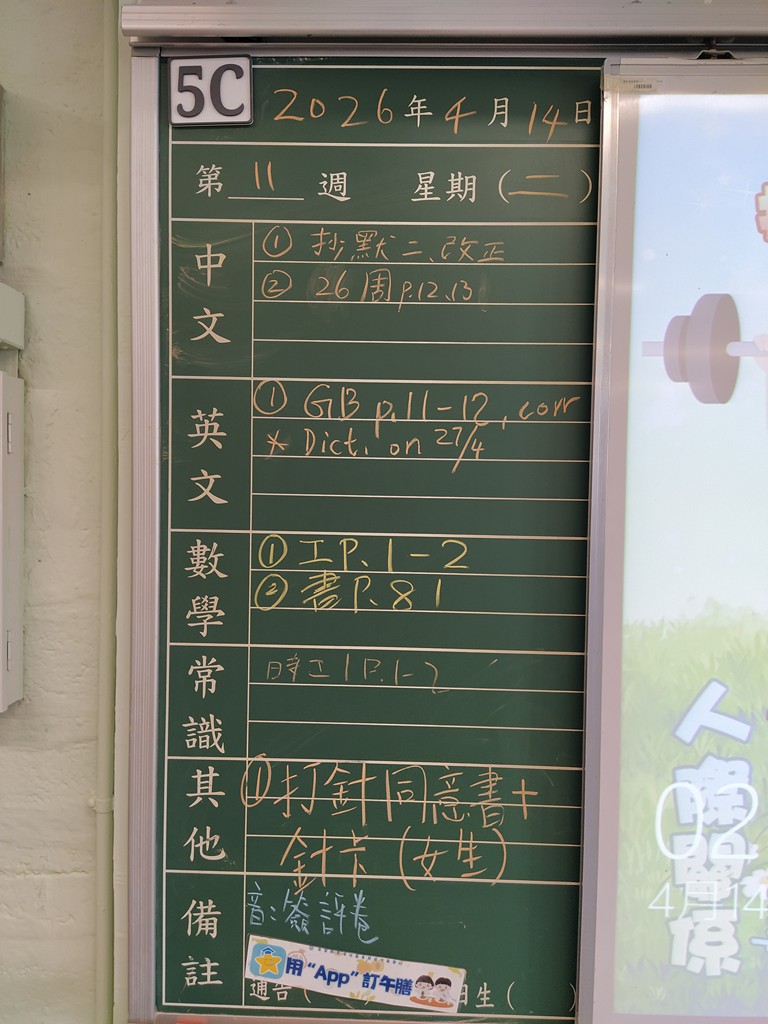 5C
2026年4月14日
第 11 週 星期(二)
中文
① 抄默二、改正
② 26周p.12、13
英文
① GB p.11-12, corr
* Dict. on 27/4
數學
① 工P.1-2
② 書P.81
常識
時工1P.1-2
其他
① 打針同意書+
針卡(女生)
備註
音:簽評卷
用“App”訂午膳
通告(
生( )
人際關係
02
4月14